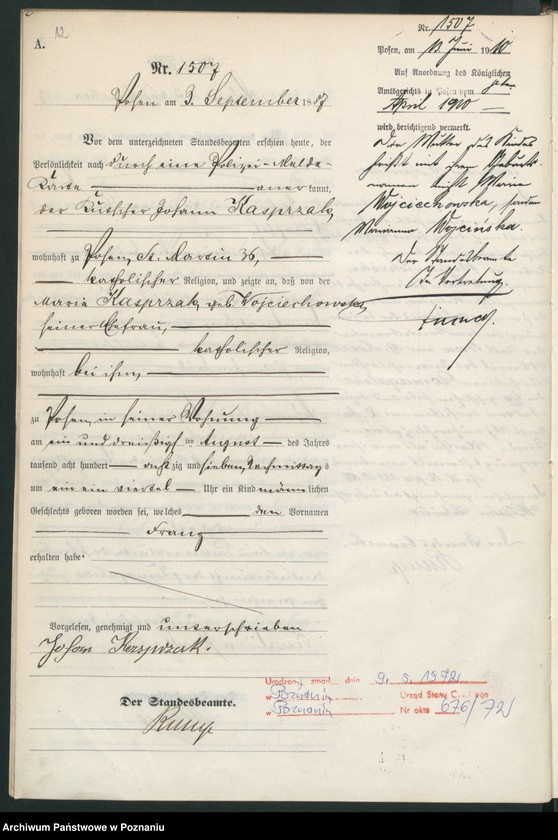 A.
12
Nr. 1507
Posen am 3. September 1887
Vor dem unterzeichneten Standesbeamten erschien heute, der
Persönlichkeit nach durch eine Polizei-Melde-
Karte anerkannt,
der Kutscher Johann Kasprzak,
wohnhaft zu Posen, St. Martin 36,
katholischer Religion, und zeigte an, daß von der
Maria Kasprzak, geb. Wojciechowska,
seiner Ehefrau,
katholischer Religion,
wohnhaft bei ihm,
zu Posen, in seiner Wohnung
am ein und dreißigsten August des Jahres
tausend acht hundert achtzig und sieben, Nachmittags
um ein ein viertel Uhr ein Kind männlichen
Geschlechts geboren worden sei, welches den Vornamen
Franz
erhalten habe.
Vorgelesen, genehmigt und unterschrieben
Johan Kasprzak.
Der Standesbeamte.
Nr. 1507
Posen, am 13. Juni 1910
Auf Anordnung des Königlichen
Amtsgerichts in Posen vom
April 1910
wird berichtigend vermerkt.
Die Mutter des Kindes
heißt mit ihrem Geburts-
namen nicht Maria
Wojciechowska, sondern
Marianna Wojcińska.
Der Standesbeamte
In Vertretung.
Urodzony zmarł dnia 9. 3. 1972
w Poznaniu Urząd Stanu Cywilnego
w Poznaniu Nr aktu 676/72
Archiwum Państwowe w Poznaniu